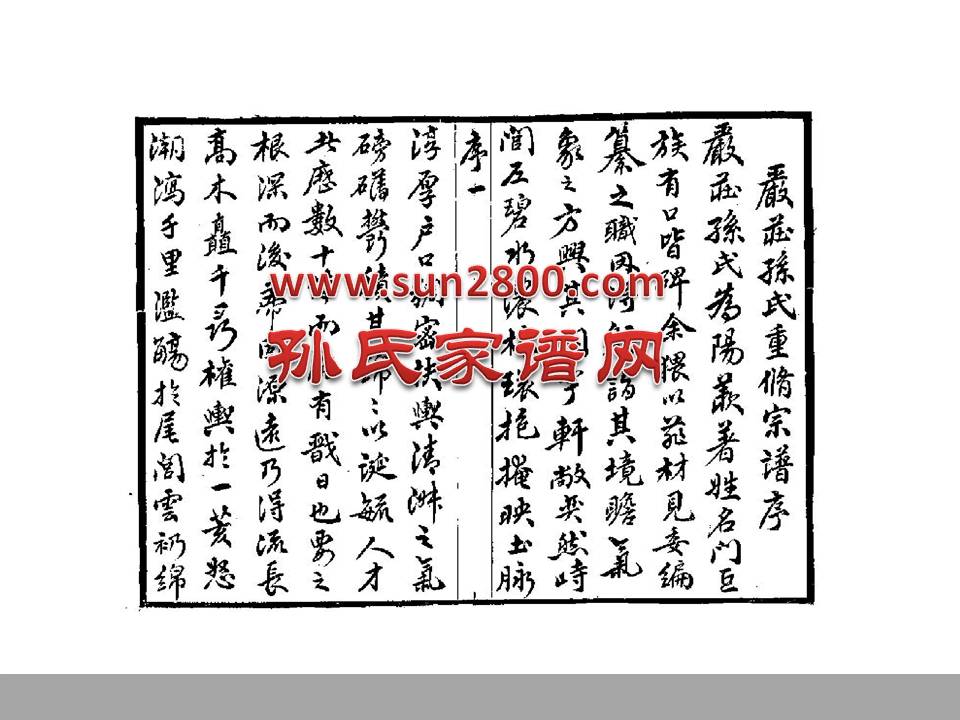 嚴莊孫氏重脩宗譜序
嚴莊孫氏為陽羨著姓名門巨
族有口皆碑余猥以菲材見委編
纂之職因得 詣其境瞻氣
象之方興其 軒敞奕然峙
閭左碧水 環抱掩映土脉
序一
淳厚戶口 密扶輿清淑之氣
磅礴鬱積其 以誕毓人才
此歷數十 而 有戩日也要之
根深而後 源遠乃得流長
高木矗千尋權輿於一荄怒
潮瀉千里濫觴於尾閭雲礽綿
www.sun2800.com
孙氏家谱网